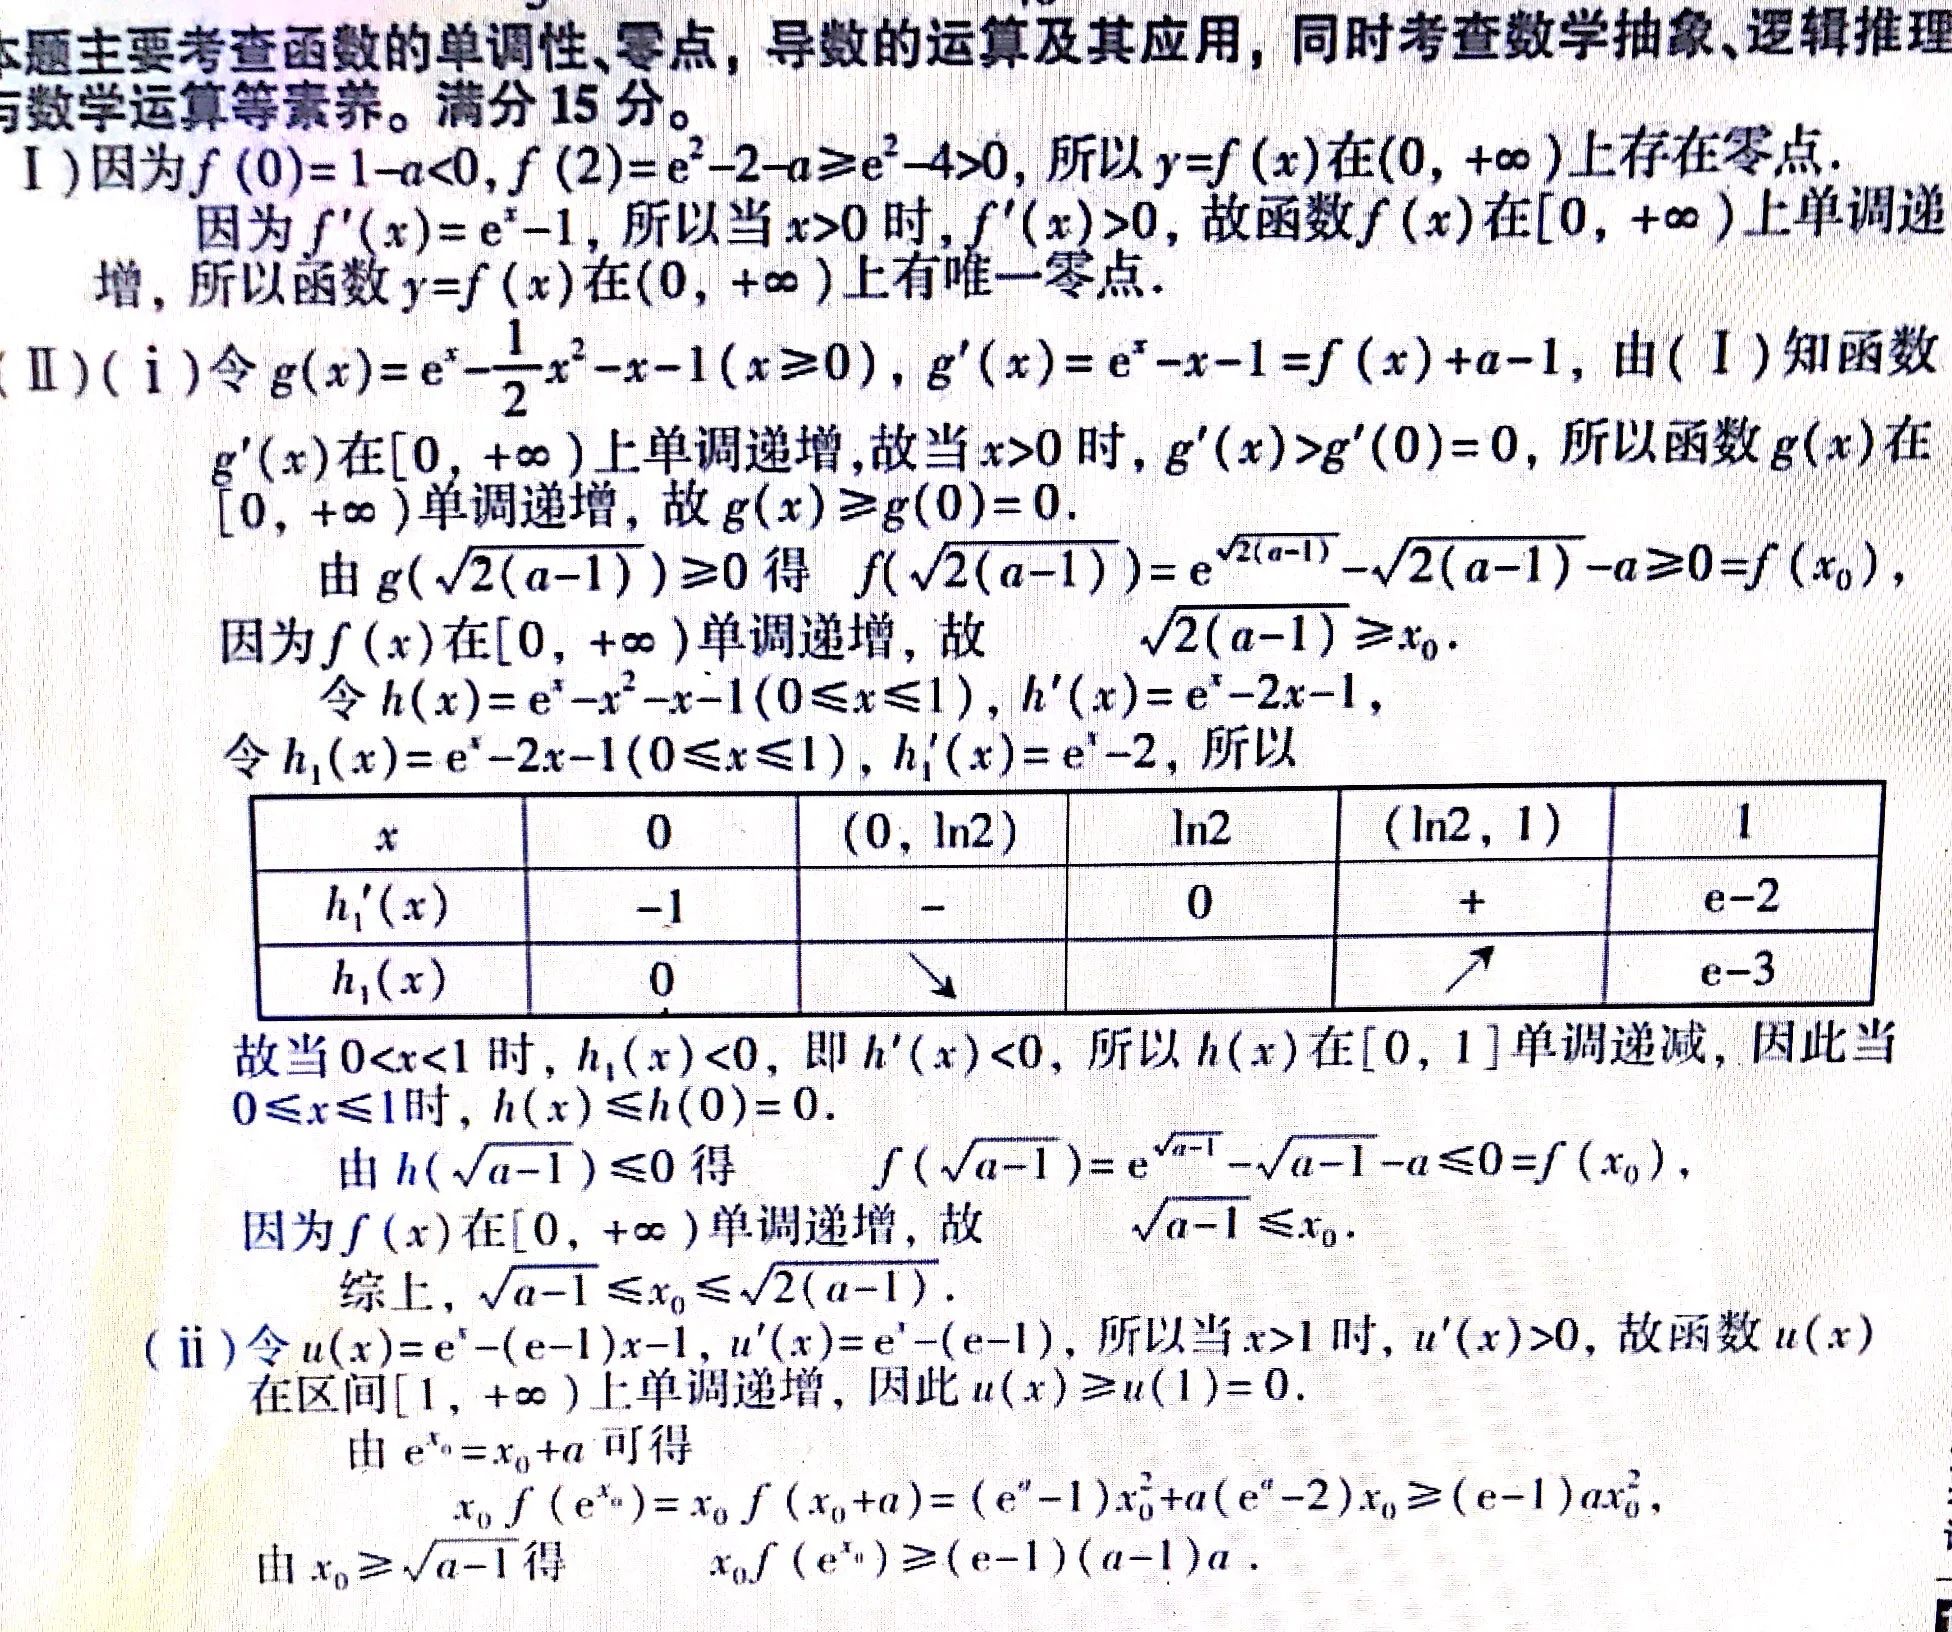 本题主要考查函数的单调性、零点，导数的运算及其应用，同时考查数学抽象、逻辑推理
与数学运算等素养。满分 15 分。
Ⅰ)因为f (0)=1-a<0, f (2)=e²-2-a≥e²-4>0, 所以 y=f (x)在(0, +∞)上存在零点.
因为 f′(x)=eˣ-1, 所以当 x>0 时, f′(x)>0, 故函数f (x)在[0, +∞)上单调递
增, 所以函数 y=f (x)在(0, +∞)上有唯一零点.
(Ⅱ)(ⅰ)令 g(x)=eˣ-1/2x²-x-1(x≥0), g′(x)=eˣ-x-1=f (x)+a-1, 由(Ⅰ)知函数
g′(x)在[0, +∞)上单调递增,故当 x>0 时, g′(x)>g′(0)=0, 所以函数 g(x)在
[0, +∞)单调递增, 故 g(x)≥g(0)=0.
由 g(√(2(a-1)))≥0 得 f(√(2(a-1)))=e^√(2(a-1))-√(2(a-1))-a≥0=f (x₀),
因为f (x)在[0, +∞)单调递增, 故 √(2(a-1))≥x₀.
令 h(x)=eˣ-x²-x-1(0≤x≤1), h′(x)=eˣ-2x-1,
令 h₁(x)=eˣ-2x-1(0≤x≤1), h₁′(x)=eˣ-2, 所以
x 0 (0, ln2) ln2 (ln2, 1) 1
h₁′(x) -1 - 0 + e-2
h₁(x) 0 ↘ ↗ e-3
故当 0<x<1 时, h₁(x)<0, 即 h′(x)<0, 所以 h(x)在[0, 1]单调递减, 因此当
0≤x≤1时, h(x)≤h(0)=0.
由 h(√(a-1))≤0 得 f (√(a-1))=e^√(a-1)-√(a-1)-a≤0=f (x₀),
因为f (x)在[0, +∞)单调递增, 故 √(a-1)≤x₀.
综上, √(a-1)≤x₀≤√(2(a-1)).
(ⅱ)令 u(x)=eˣ-(e-1)x-1, u′(x)=eˣ-(e-1), 所以当 x>1 时, u′(x)>0, 故函数 u(x)
在区间[1, +∞)上单调递增, 因此 u(x)≥u(1)=0.
由 e^x₀=x₀+a 可得
x₀ f (e^x₀)=x₀ f (x₀+a)=(eᵃ-1)x₀²+a(eᵃ-2)x₀≥(e-1)ax₀²,
由 x₀≥√(a-1)得 x₀f (e^x₀)≥(e-1)(a-1)a.